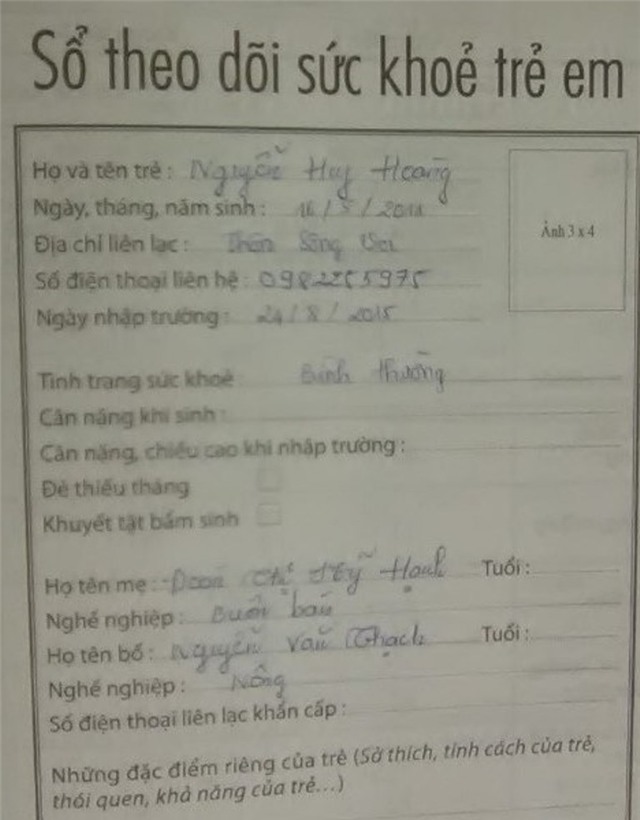 Sổ theo dõi sức khoẻ trẻ em
Họ và tên trẻ : Nguyễn Huy Hoàng
Ảnh 3 x 4
Ngày, tháng, năm sinh : 16 / 5 /
Địa chỉ liên lạc : Thôn Sông
Số điện thoại liên hệ : 0982255975
Ngày nhập trường : 24 / 8 / 2015
Tình trạng sức khoẻ Bình thường
Cân nặng khi sinh :
Cân nặng, chiều cao khi nhập trường :
Đẻ thiếu tháng
Khuyết tật bẩm sinh
Họ tên mẹ : Đoàn Thị Mỹ Hạnh Tuổi :
Nghề nghiệp : Buôn bán
Họ tên bố : Nguyễn Văn Thạch Tuổi :
Nghề nghiệp : Nông
Số điện thoại liên lạc khẩn cấp :
Những đặc điểm riêng của trẻ (Sở thích, tính cách của trẻ,
thói quen, khả năng của trẻ...)